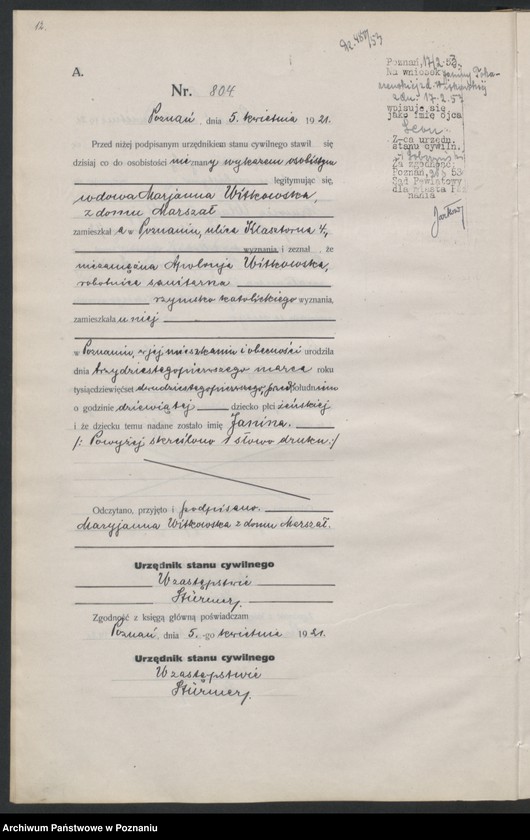 12.
A.
Nr. 804
Poznań, dnia 5. kwietnia 1921.
Przed niżej podpisanym urzędnikiem stanu cywilnego stawił się
dzisiaj co do osobistości nieznany wykazem osobistym
legitymując się,
wdowa Marjanna Witkowska,
z domu Marszał
zamieszkała w Poznaniu, ulica Klasztorna 4,
wyznania, i zeznał, że
niezamężna Apolonja Witkowska,
robotnica sanitarna
rzymsko katolickiego wyznania,
zamieszkała u niej
w Poznaniu, w jej mieszkaniu i obecności urodziła
dnia trzydziestegopierwszego marca roku
tysiącdziewięćset dwudziestegopierwszego, przedpołudniem
o godzinie dziewiątej dziecko płci żeńskiej
i że dziecku temu nadane zostało imię Janina.
/: Powyżej skreślono 1 słowo druku :/
Odczytano, przyjęto i podpisano.
Maryjanna Witkowska z domu Marszał.
Urzędnik stanu cywilnego
W zastępstwie
Stürmer
Zgodność z księgą główną poświadczam
Poznań, dnia 5.-go kwietnia 1921.
Urzędnik stanu cywilnego
W zastępstwie
Stürmer
Poznań, 17/2 53.
Na wniosek Janiny
17.2.53
wpisuje się
jako imię ojca
Leon
Z-ca urzędn.
stanu cywiln.
Za zgodność:
Poznań, 53
Sąd Powiatowy
dla miasta Poz
nania
Archiwum Państwowe w Poznaniu